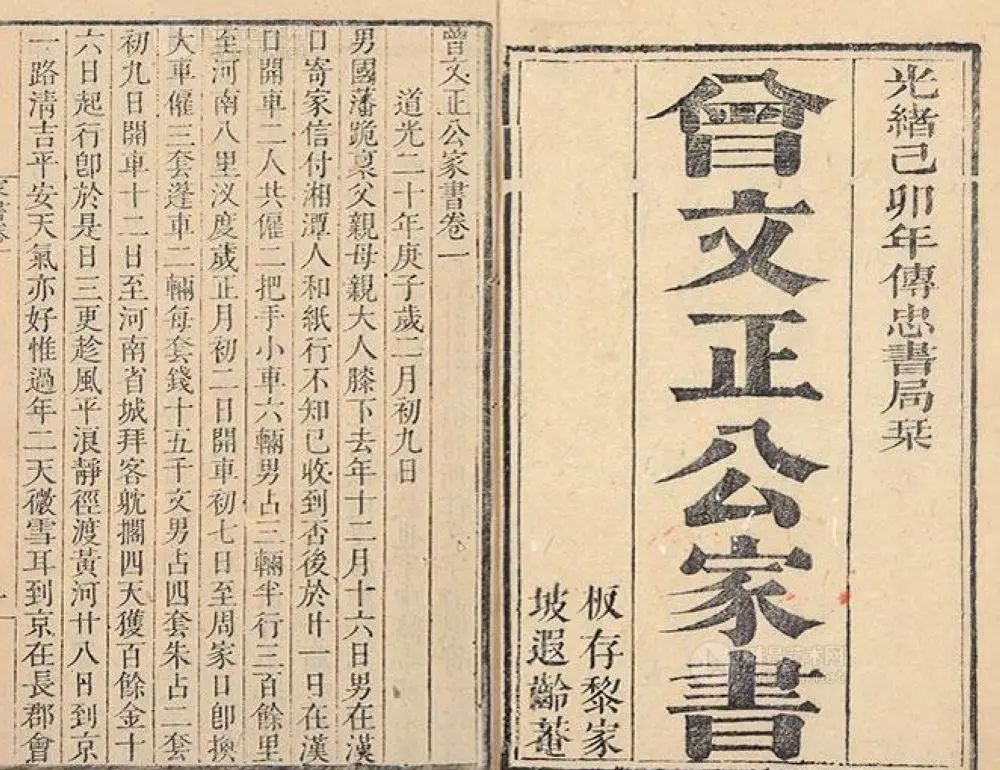 光緒己卯年傳忠書局栞
曾文正公家書
板存黎家
坡遐齡菴
曾文正公家書卷一
道光二十年庚子歲二月初九日
男國藩跪稟父親母親大人膝下去年十二月十六日男在漢
口寄家信付湘潭人和紙行不知已收到否後於廿一日在漢
口開車二人共僱二把手小車六輛男占三輛半行三百餘里
至河南八里汊度歲正月初二日開車初七日至周家口卽換
大車僱三套篷車二輛每套錢十五千文男占四套朱占二套
初九日開車十二日至河南省城拜客躭擱四天獲百餘金十
六日起行卽於是日三更趁風平浪靜徑渡黃河廿八日到京
一路清吉平安天氣亦好惟過年二天微雪耳到京在長郡會